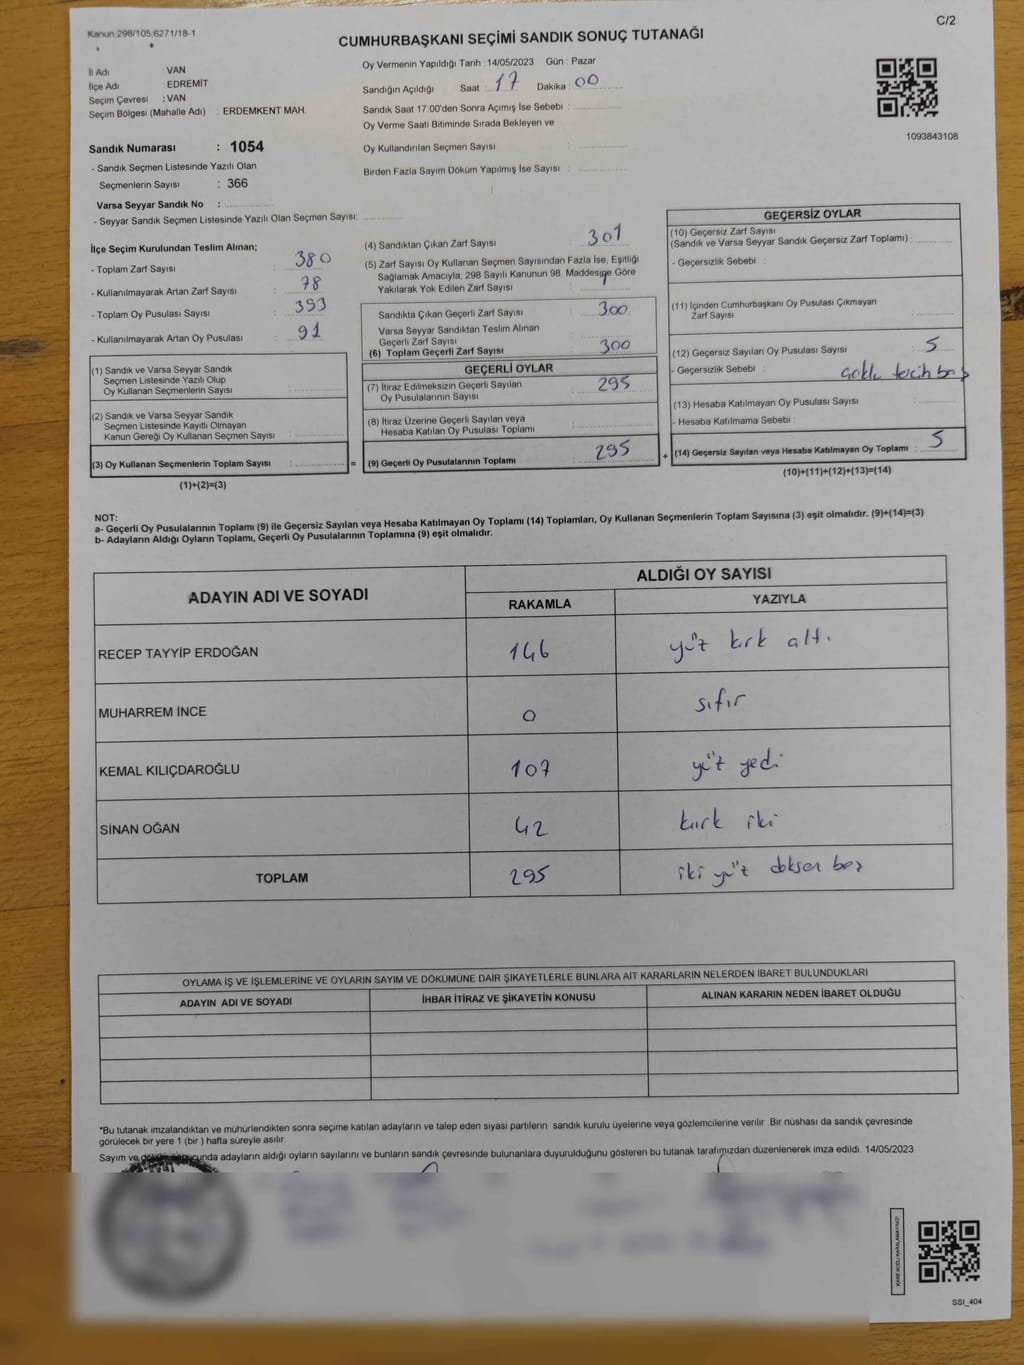 Kanun:298/105;6271/18-1
C/2
CUMHURBAŞKANI SEÇİMİ SANDIK SONUÇ TUTANAĞI
İl Adı : VAN
İlçe Adı : EDREMİT
Seçim Çevresi : VAN
Seçim Bölgesi (Mahalle Adı) : ERDEMKENT MAH.
Oy Vermenin Yapıldığı Tarih : 14/05/2023 Gün : Pazar
Sandığın Açıldığı Saat : 17 Dakika : 00
Sandık Saat 17:00'den Sonra Açımış İse Sebebi :
Oy Verme Saati Bitiminde Sırada Bekleyen ve
Oy Kullandırılan Seçmen Sayısı :
Birden Fazla Sayım Döküm Yapılmış İse Sayısı :
1093843108
Sandık Numarası : 1054
- Sandık Seçmen Listesinde Yazılı Olan
Seçmenlerin Sayısı : 366
Varsa Seyyar Sandık No :
- Seyyar Sandık Seçmen Listesinde Yazılı Olan Seçmen Sayısı:
İlçe Seçim Kurulundan Teslim Alınan;
- Toplam Zarf Sayısı : 380
- Kullanılmayarak Artan Zarf Sayısı : 78
- Toplam Oy Pusulası Sayısı : 393
- Kullanılmayarak Artan Oy Pusulası : 91
(1) Sandık ve Varsa Seyyar Sandık
Seçmen Listesinde Yazılı Olup
Oy Kullanan Seçmenlerin Sayısı :
(2) Sandık ve Varsa Seyyar Sandık
Seçmen Listesinde Kayıtlı Olmayan
Kanun Gereği Oy Kullanan Seçmen Sayısı :
(3) Oy Kullanan Seçmenlerin Toplam Sayısı :
(1)+(2)=(3)
(4) Sandıktan Çıkan Zarf Sayısı : 301
(5) Zarf Sayısı Oy Kullanan Seçmen Sayısından Fazla İse, Eşitliği
Sağlamak Amacıyla; 298 Sayılı Kanunun 98. Maddesine Göre
Yakılarak Yok Edilen Zarf Sayısı : 1
Sandıkta Çıkan Geçerli Zarf Sayısı : 300
Varsa Seyyar Sandıktan Teslim Alınan
Geçerli Zarf Sayısı :
(6) Toplam Geçerli Zarf Sayısı : 300
GEÇERLİ OYLAR
(7) İtiraz Edilmeksizin Geçerli Sayılan
Oy Pusulalarının Sayısı : 295
(8) İtiraz Üzerine Geçerli Sayılan veya
Hesaba Katılan Oy Pusulası Toplamı :
= (9) Geçerli Oy Pusulalarının Toplamı : 295
GEÇERSİZ OYLAR
(10) Geçersiz Zarf Sayısı
(Sandık ve Varsa Seyyar Sandık Geçersiz Zarf Toplamı) :
- Geçersizlik Sebebi :
(11) İçinden Cumhurbaşkanı Oy Pusulası Çıkmayan
Zarf Sayısı :
(12) Geçersiz Sayılan Oy Pusulası Sayısı : 5
- Geçersizlik Sebebi : tercih boş
(13) Hesaba Katılmayan Oy Pusulası Sayısı :
- Hesaba Katılmama Sebebi :
+ (14) Geçersiz Sayılan veya Hesaba Katılmayan Oy Toplamı : 5
(10)+(11)+(12)+(13)=(14)
NOT:
a- Geçerli Oy Pusulalarının Toplamı (9) ile Geçersiz Sayılan veya Hesaba Katılmayan Oy Toplamı (14) Toplamları, Oy Kullanan Seçmenlerin Toplam Sayısına (3) eşit olmalıdır. (9)+(14)=(3)
b- Adayların Aldığı Oyların Toplamı, Geçerli Oy Pusulalarının Toplamına (9) eşit olmalıdır.
ADAYIN ADI VE SOYADI
ALDIĞI OY SAYISI
RAKAMLA YAZIYLA
RECEP TAYYİP ERDOĞAN 146 yüz kırk altı
MUHARREM İNCE 0 sıfır
KEMAL KILIÇDAROĞLU 107 yüz yedi
SİNAN OĞAN 42 kırk iki
TOPLAM 295 iki yüz doksan beş
OYLAMA İŞ VE İŞLEMLERİNE VE OYLARIN SAYIM VE DÖKÜMÜNE DAİR ŞİKAYETLERLE BUNLARA AİT KARARLARIN NELERDEN İBARET BULUNDUKLARI
ADAYIN ADI VE SOYADI İHBAR İTİRAZ VE ŞİKAYETİN KONUSU ALINAN KARARIN NEDEN İBARET OLDUĞU
*Bu tutanak imzalandıktan ve mühürlendikten sonra seçime katılan adayların ve talep eden siyasi partilerin sandık kurulu üyelerine veya gözlemcilerine verilir. Bir nüshası da sandık çevresinde
görülecek bir yere 1 (bir ) hafta süreyle asılır.
Sayım ve dökümü sonucunda adayların aldığı oyların sayılarını ve bunların sandık çevresinde bulunanlara duyurulduğunu gösteren bu tutanak tarafımızdan düzenlenerek imza edildi. 14/05/2023
KARE KODU KARALAMAYINIZ!
SSI_404